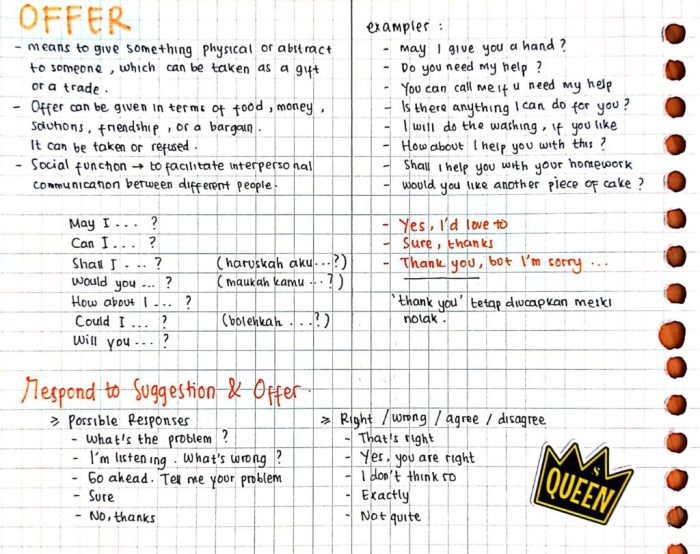 OFFER
- means to give something physical or abstract
to someone, which can be taken as a gift
or a trade.
- Offer can be given in terms of food, money,
solutions, friendship, or a bargain.
It can be taken or refused.
- Social function → to facilitate interpersonal
communication between different people.
May I ... ?
Can I ... ?
Shall I ... ? (haruskah aku ...?)
Would you ... ? (maukah kamu ...?)
How about I ... ?
Could I ... ? (bolehkah ...?)
Will you ... ?
examples :
- may I give you a hand ?
- Do you need my help ?
- You can call me if u need my help
- Is there anything I can do for you ?
- I will do the washing, if you like
- How about I help you with this ?
- Shall I help you with your homework
- would you like another piece of cake ?
- Yes, I'd love to
- Sure, thanks
- Thank you, but I'm sorry ...
'thank you' tetap diucapkan meski
nolak.
Respond to Suggestion & Offer.
> Possible Responses
- What's the problem ?
- I'm listening. What's wrong ?
- Go ahead. Tell me your problem
- Sure
- No, thanks
> Right / wrong / agree / disagree
- That's right
- Yes, you are right
- I don't think so
- Exactly
- Not quite
$
QUEEN